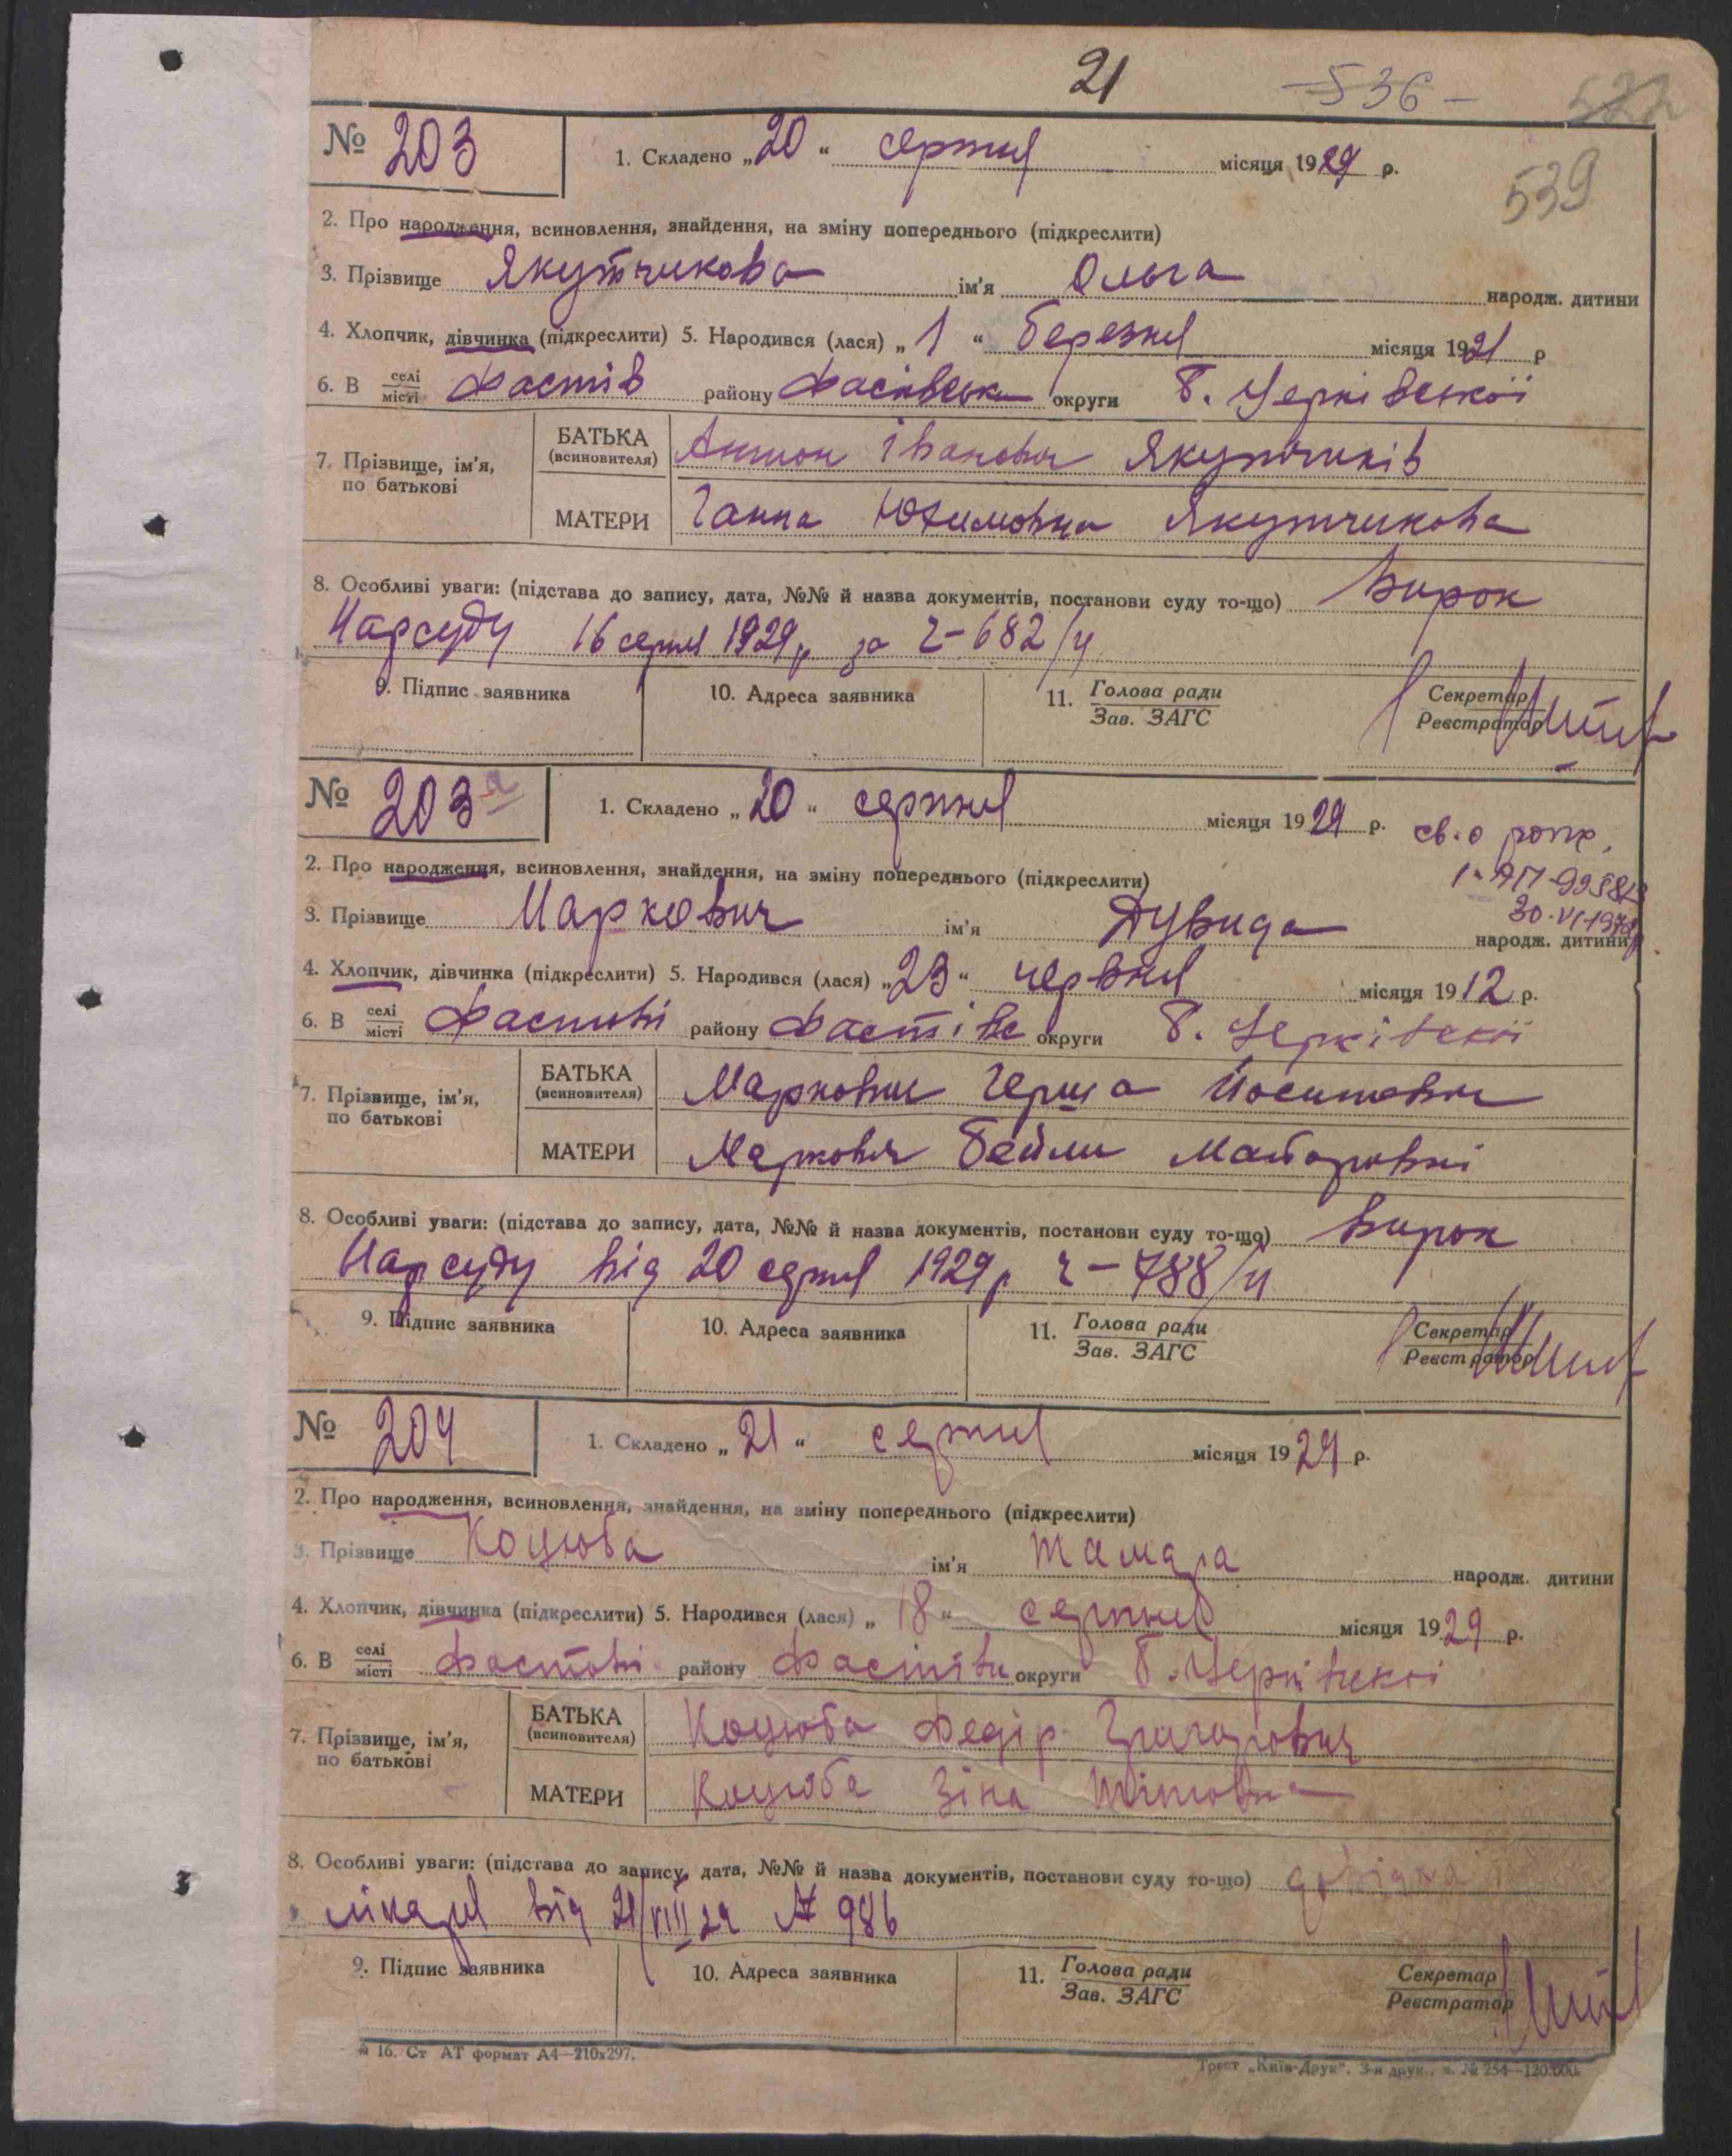 21 -536- 522
№ 203 1. Складено „20“ серпня місяця 1929 р.
539
2. Про народження, всиновлення, знайдення, на зміну попереднього (підкреслити)
3. Прізвище Якутчикова ім'я Ольга народж. дитини
4. Хлопчик, дівчинка (підкреслити) 5. Народився (лася) „1“ березня місяця 1921 р
6. В селі/місті Фастів району округи Б.
7. Прізвище, ім'я, по батькові
БАТЬКА (всиновителя) Антон Іванович Якутчиків
МАТЕРИ Ганна Юхимовна Якутчикова
8. Особливі уваги: (підстава до запису, дата, №№ й назва документів, постанови суду то-що) Вирок
Нарсуду 16 серпня 1929 р за 2-682/ч
9. Підпис заявника 10. Адреса заявника 11. Голова ради/Зав. ЗАГС Секретар/Реєстратор
№ 203а 1. Складено „20“ серпня місяця 1929 р.
св. о рожд.
2. Про народження, всиновлення, знайдення, на зміну попереднього (підкреслити)
3. Прізвище Маркович ім'я Дувида народж. дитини
4. Хлопчик, дівчинка (підкреслити) 5. Народився (лася) „23“ червня місяця 1912 р.
6. В селі/місті Фастові району Фастівс округи Б.
7. Прізвище, ім'я, по батькові
БАТЬКА (всиновителя) Маркович Герша Йосипович
МАТЕРИ Маркович Бейли
8. Особливі уваги: (підстава до запису, дата, №№ й назва документів, постанови суду то-що) Вирок
Нарсуду від 20 серпня 1929 р ч-788/ч
9. Підпис заявника 10. Адреса заявника 11. Голова ради/Зав. ЗАГС Секретар/Реєстратор
№ 204 1. Складено „21“ серпня місяця 1929 р.
2. Про народження, всиновлення, знайдення, на зміну попереднього (підкреслити)
3. Прізвище Коцюба ім'я Тамара народж. дитини
4. Хлопчик, дівчинка (підкреслити) 5. Народився (лася) „18“ серпня місяця 1929 р.
6. В селі/місті Фастові району округи Б.
7. Прізвище, ім'я, по батькові
БАТЬКА (всиновителя) Коцюба Федір Григорович
МАТЕРИ Коцюба Зіна Тітовна
8. Особливі уваги: (підстава до запису, дата, №№ й назва документів, постанови суду то-що) довідка
лікаря від 21/VIII 29 № 986
9. Підпис заявника 10. Адреса заявника 11. Голова ради/Зав. ЗАГС Секретар/Реєстратор
16. Ст АТ формат А4—210х297. Трест „Київ-Друк“. 3-я друк., з. № 254—120.000.